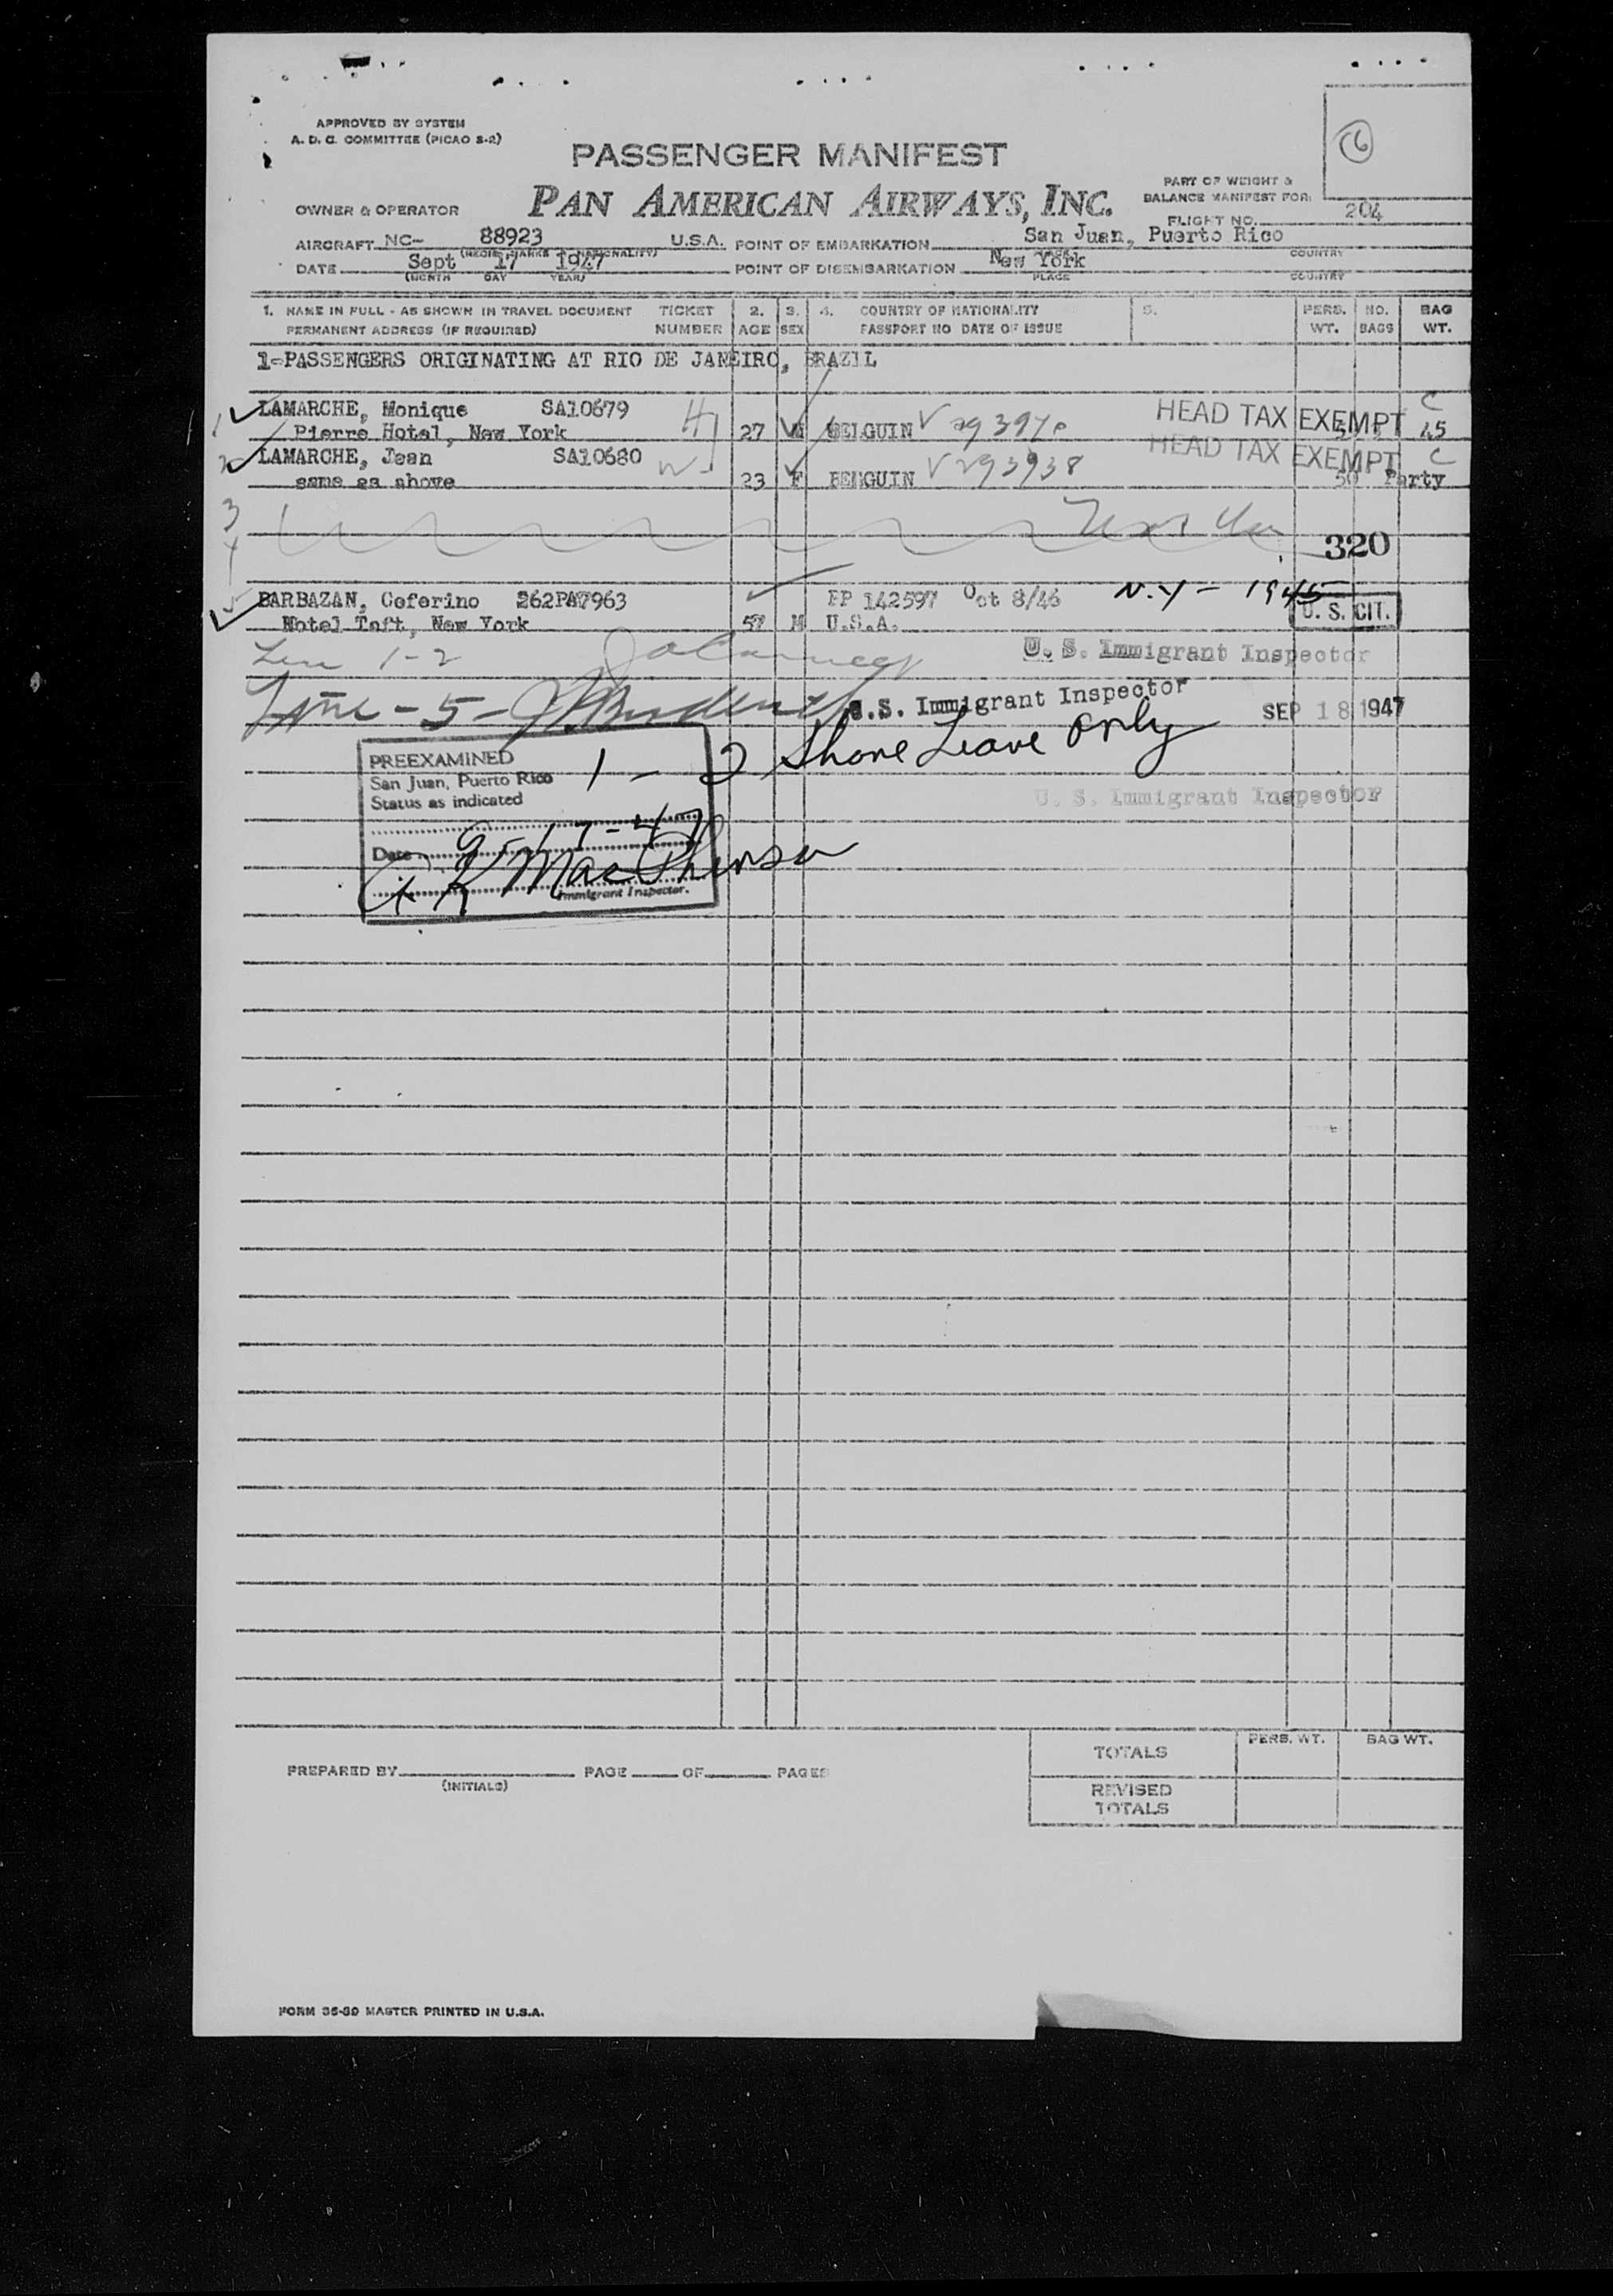 APPROVED BY SYSTEM
A. D. C. COMMITTEE (PICAO S-2)
PASSENGER MANIFEST
PAN AMERICAN AIRWAYS, INC.
PART OF WEIGHT &
BALANCE MANIFEST FOR:
FLIGHT NO. 204
6
OWNER & OPERATOR
AIRCRAFT NC- 88923 U.S.A. POINT OF EMBARKATION San Juan, Puerto Rico
COUNTRY
DATE Sept 17 1947 POINT OF DISEMBARKATION New York
(MONTH DAY YEAR) PLACE COUNTRY
1. NAME IN FULL - AS SHOWN IN TRAVEL DOCUMENT TICKET 2. 3. 4. COUNTRY OF NATIONALITY 5. PERS. NO. BAG
PERMANENT ADDRESS (IF REQUIRED) NUMBER AGE SEX PASSPORT NO DATE OF ISSUE WT. BAGS WT.
1-PASSENGERS ORIGINATING AT RIO DE JANEIRO, BRAZIL
1 LAMARCHE, Monique SA10679 H HEAD TAX EXEMPT C
Pierre Hotel, New York 27 BELGUIN V 45
2 LAMARCHE, Jean SA10680 W HEAD TAX EXEMPT C
same as above 23 F BELGUIN V 293938 50 Party
3
4
320
5 BARBAZAN, Ceferino 262PA7963 PP 142597 Oct 8/46 N.Y - 1945
Hotel Taft, New York 57 M U.S.A. U. S. CIT.
Line 1-2 U. S. Immigrant Inspector
Line - 5 - U.S. Immigrant Inspector SEP 18 1947
PREEXAMINED
San Juan, Puerto Rico 1 - 2 Shore Leave only
Status as indicated U. S. Immigrant Inspector
Date 9-17-47
Immigrant Inspector.
PREPARED BY PAGE OF PAGES
(INITIALS)
TOTALS PERS. WT. BAG WT.
REVISED
TOTALS
FORM 35-39 MASTER PRINTED IN U.S.A.